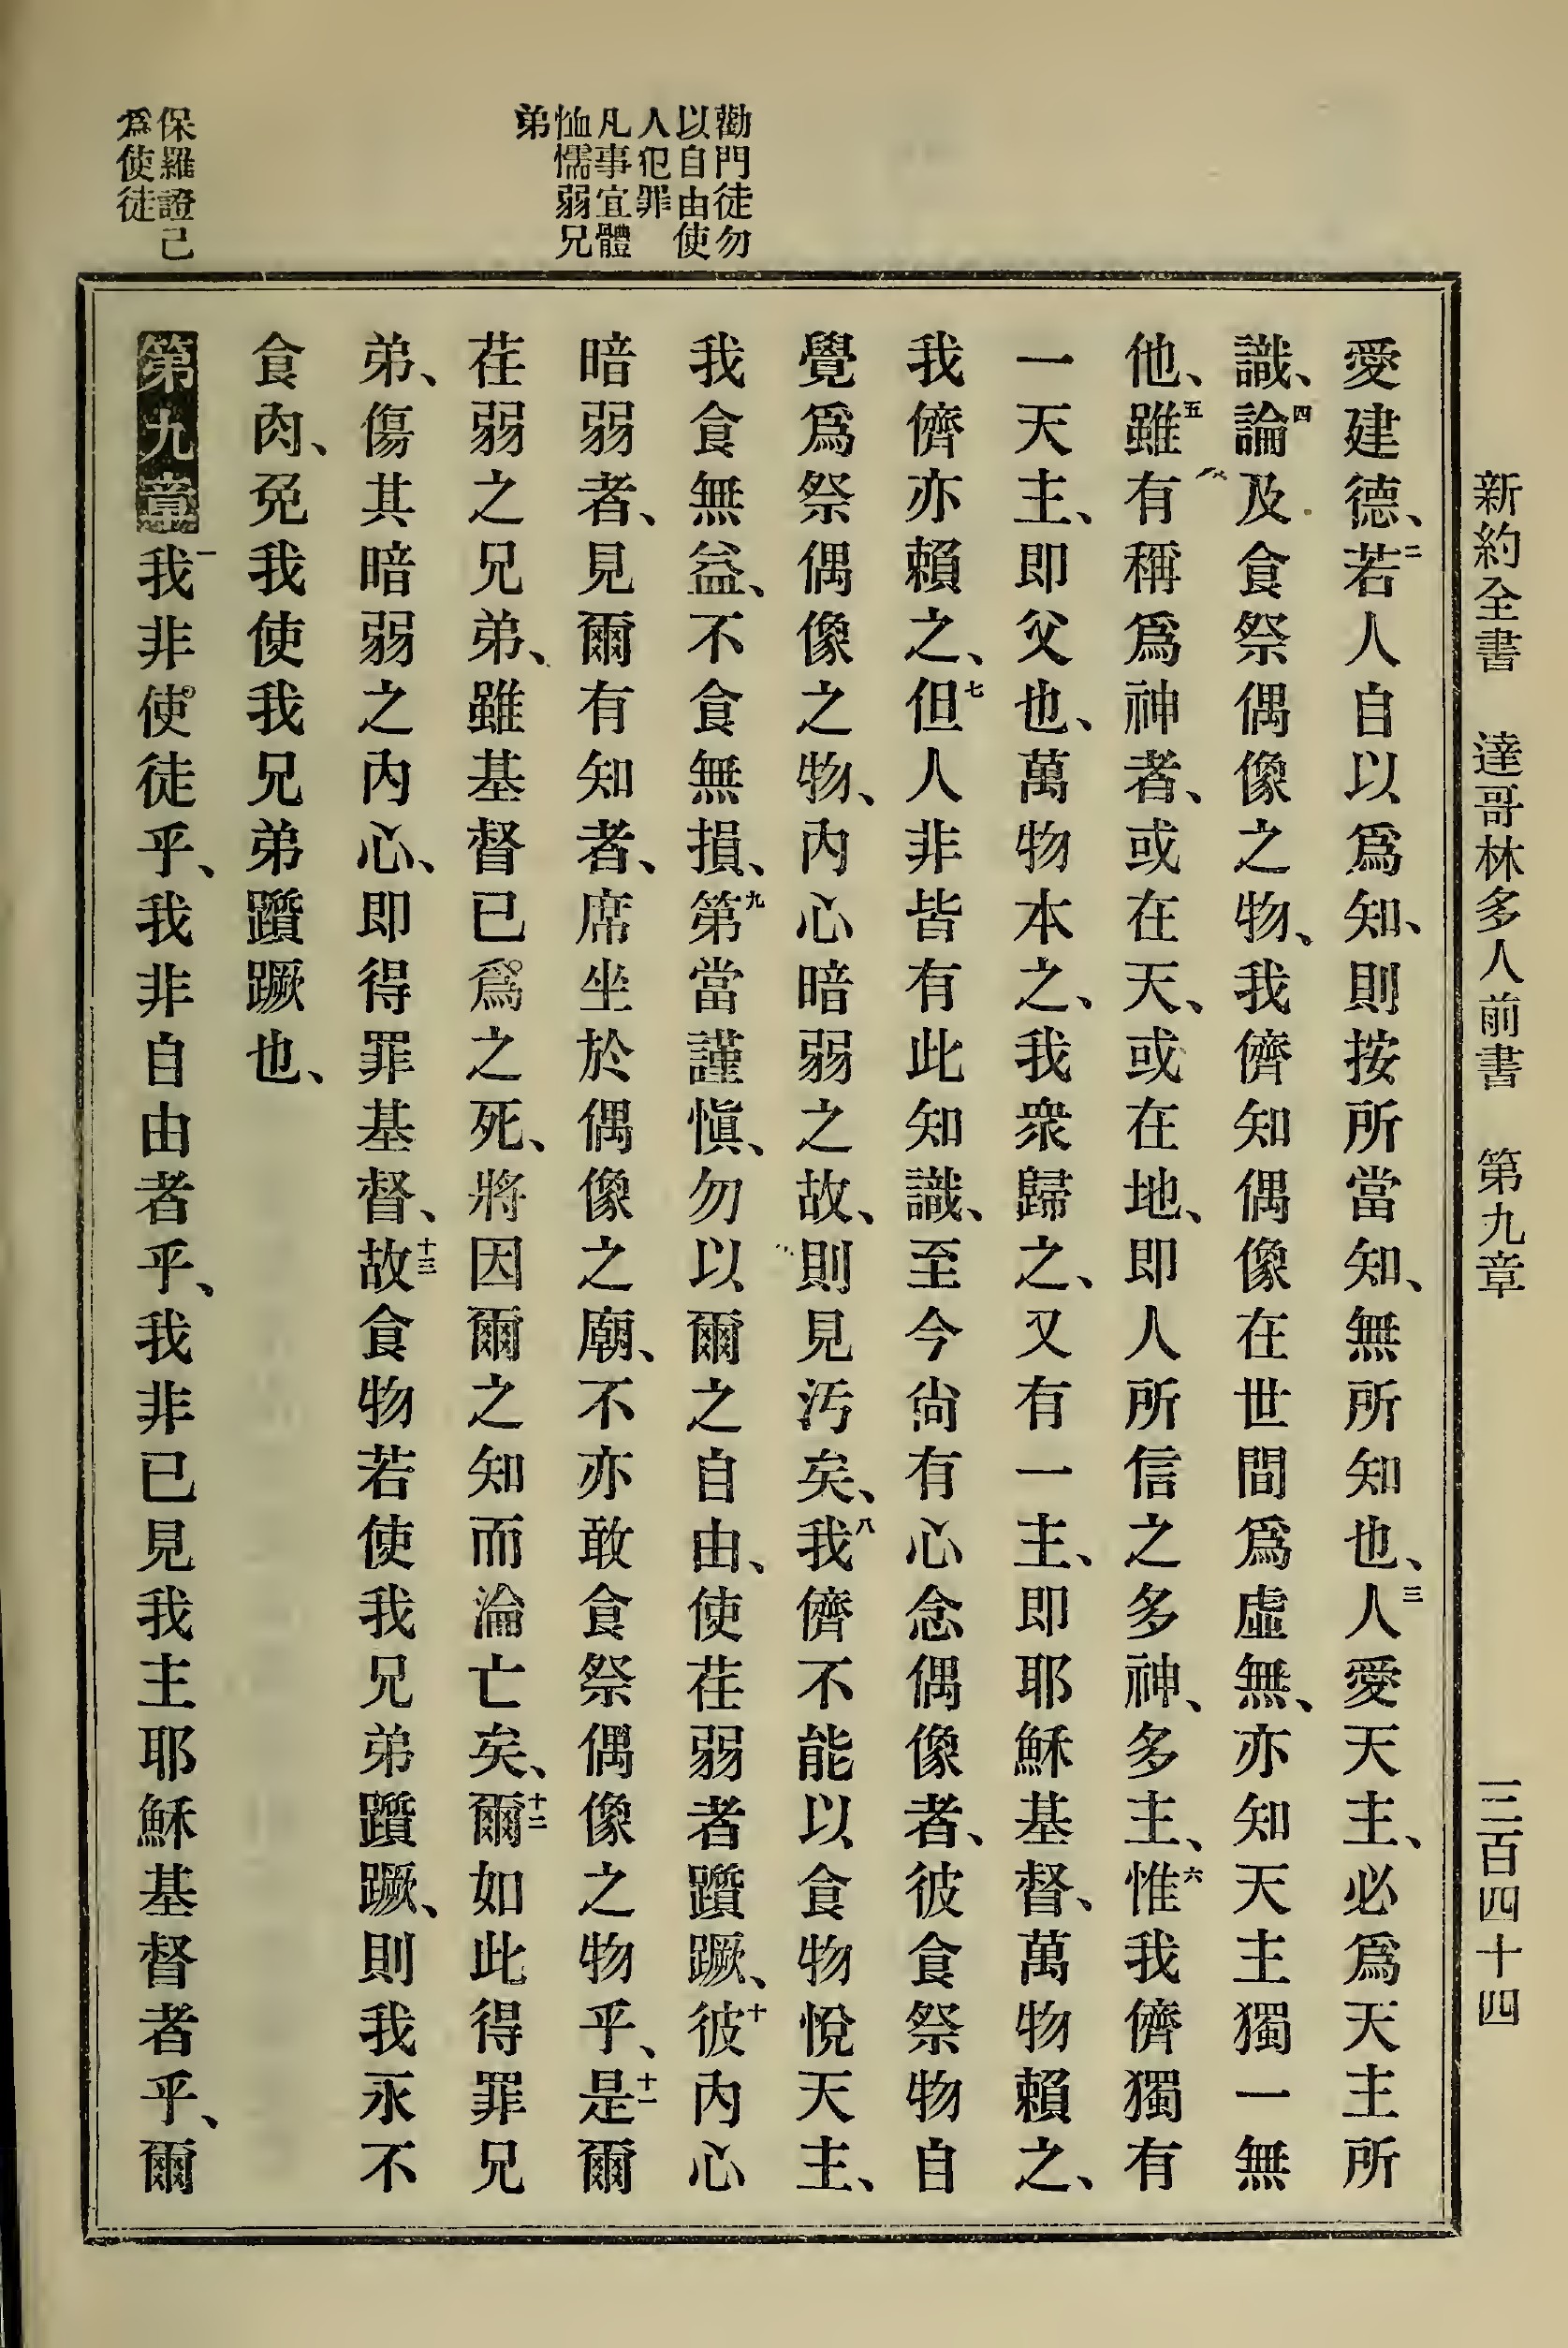 新約全書 達哥林多人前書 第九章 三百四十四
勸門徒勿
以自由使
人犯罪
凡事宜體
恤懦弱兄
弟
保羅證己
爲使徒
愛建德、二若人自以爲知、則按所當知、無所知也、三人愛天主、必爲天主所
識、四論及食祭偶像之物、我儕知偶像在世間爲虛無、亦知天主獨一無
他、五雖有稱爲神者、或在天、或在地、即人所信之多神、多主、六惟我儕獨有
一天主、即父也、萬物本之、我衆歸之、又有一主、即耶穌基督、萬物賴之、
我儕亦賴之、七但人非皆有此知識、至今尙有心念偶像者、彼食祭物自
覺爲祭偶像之物、內心暗弱之故、則見汚矣、八我儕不能以食物悅天主、
我食無益、不食無損、九第當謹愼、勿以爾之自由、使荏弱者躓蹶、十彼內心
暗弱者、見爾有知者、席坐於偶像之廟、不亦敢食祭偶像之物乎、十一是爾
荏弱之兄弟、雖基督已爲之死、將因爾之知而淪亡矣、十二爾如此得罪兄
弟、傷其暗弱之內心、即得罪基督、十三故食物若使我兄弟躓蹶、則我永不
食肉、免我使我兄弟躓蹶也、
第九章 一我非使徒乎、我非自由者乎、我非已見我主耶穌基督者乎、爾